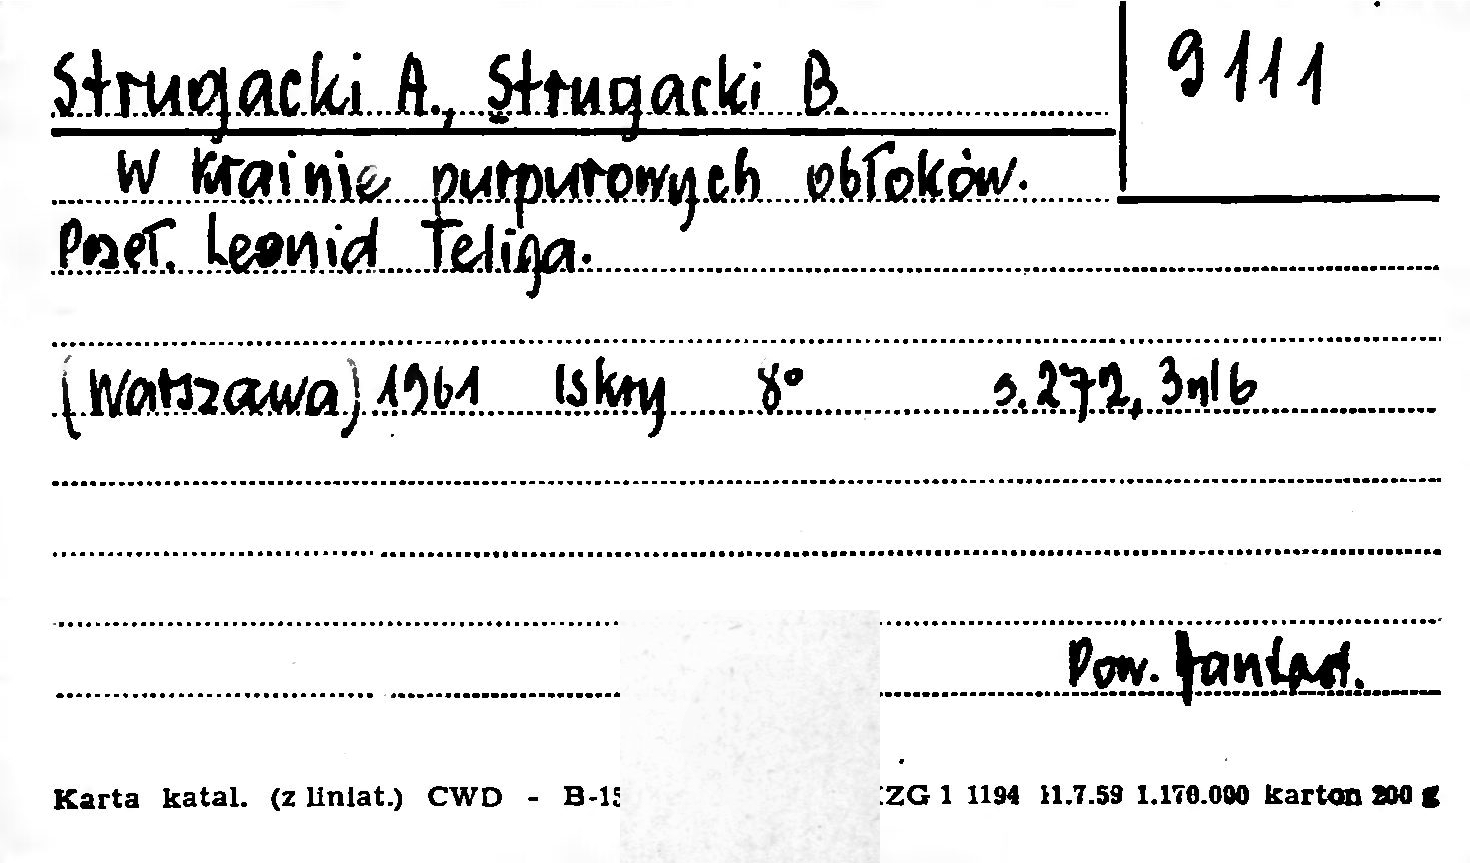 Strugacki A., Strugacki B.
9111
W krainie purpurowych obłoków.
Przeł. Leonid Teliga.
(Warszawa) 1961 Iskry 8° s. 272, 3nlb
Pow. fantast.
Karta katal. (z liniat.) CWD - B-15 ZG 1 1194 11.7.59 1.170.000 karton 200 g